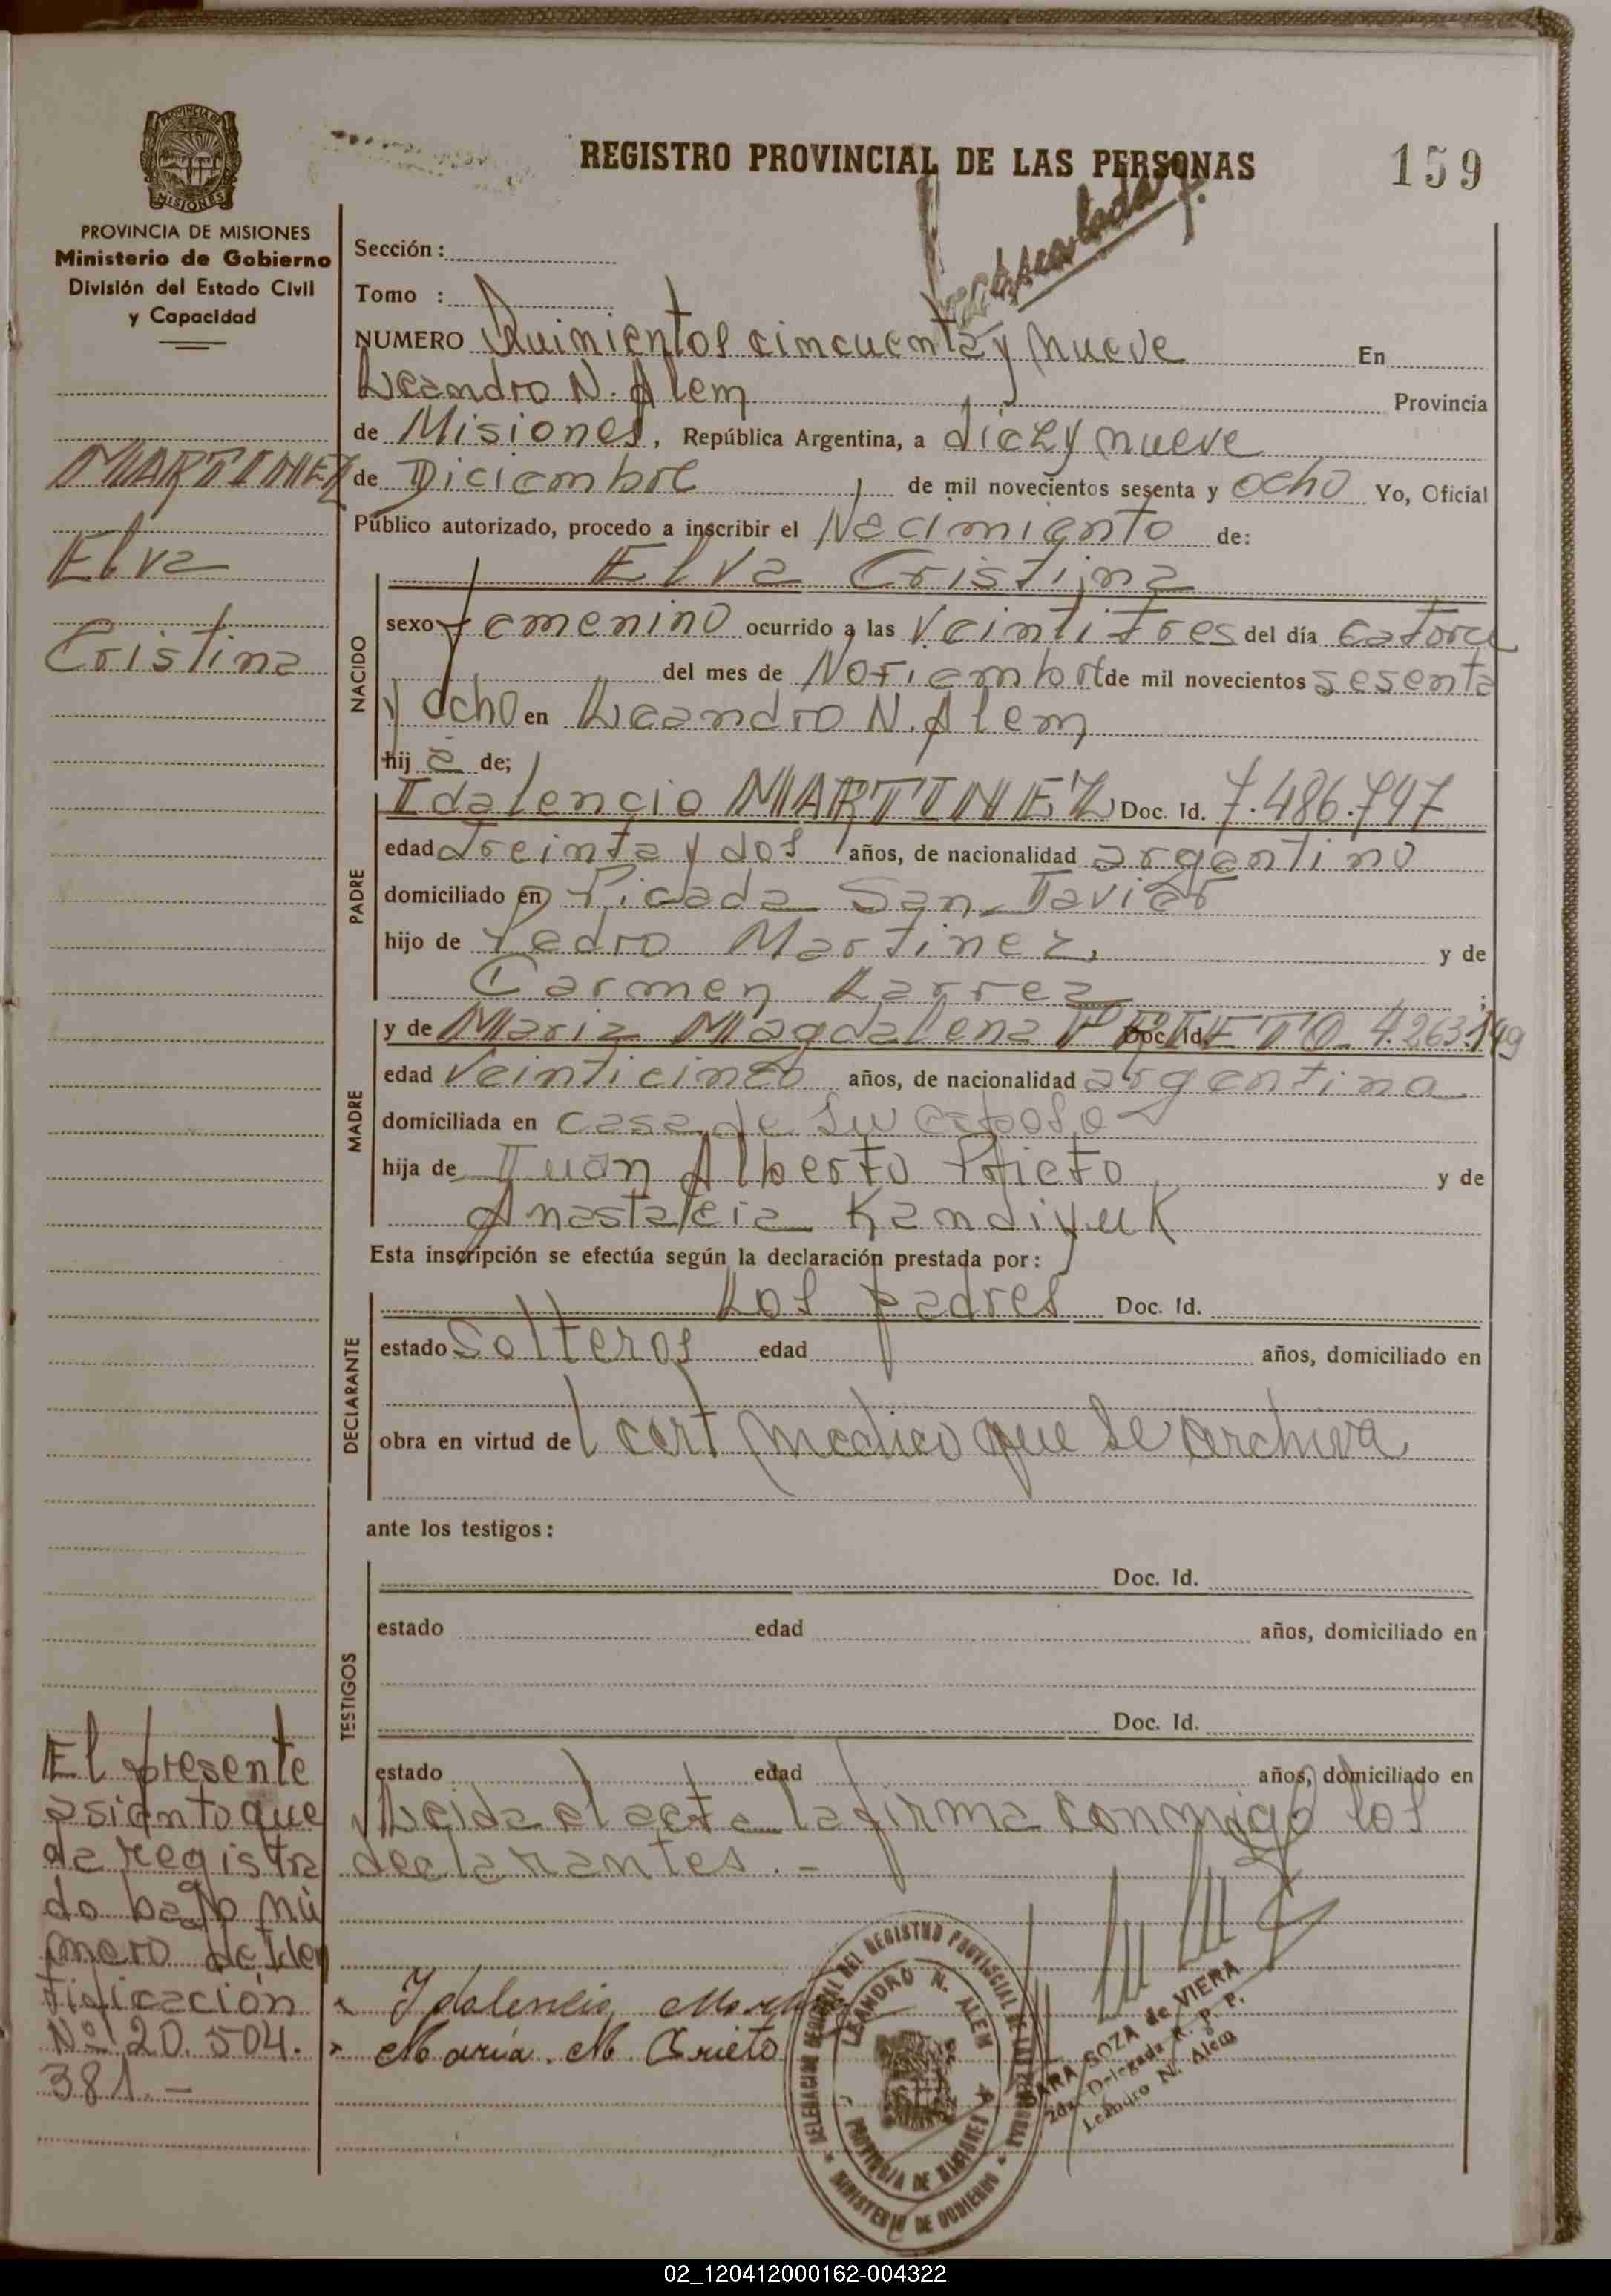 REGISTRO PROVINCIAL DE LAS PERSONAS
159
PROVINCIA DE MISIONES
PROVINCIA DE MISIONES
Ministerio de Gobierno
División del Estado Civil
y Capacidad
MARTINEZ
Elva
Cristina
Sección :
Tomo :
NUMERO Quinientos cincuenta y nueve En
Leandro N. Alem Provincia
de Misiones, República Argentina, a diez y nueve
de Diciembre de mil novecientos sesenta y ocho Yo, Oficial
Público autorizado, procedo a inscribir el Nacimiento de:
Elva Cristina
NACIDO
sexo femenino ocurrido a las Veintitres del día catorce
del mes de Noviembre de mil novecientos sesenta
y ocho en Leandro N. Alem
hij a de;
PADRE
Idalencio MARTINEZ Doc. Id. 7.486.747
edad treinta y dos años, de nacionalidad argentino
domiciliado en Picada San Javier
hijo de Pedro Martinez, y de
Carmen Larrea ;
MADRE
y de Maria Magdalena PRIETO Doc. Id. 4.263.149
edad Veinticinco años, de nacionalidad argentina
domiciliada en casa de su esposo
hija de Juan Alberto Prieto y de
Anastacia Kandiyuk
Esta inscripción se efectúa según la declaración prestada por :
DECLARANTE
Los padres Doc. Id.
estado Solteros edad años, domiciliado en
obra en virtud de cert medico que se archiva
ante los testigos :
TESTIGOS
Doc. Id.
estado edad años, domiciliado en
Doc. Id.
estado edad años, domiciliado en
Leida el acta la firma conmigo los
declarantes. -
El presente
asiento que
da registra
do bajo nú
mero de Iden
tificación
Nº 20.504.
381.-
x Idalencio
x Maria. M. Prieto
DELEGACION REGIONAL DEL REGISTRO PROVINCIAL DE LAS PERSONAS
LEANDRO N. ALEM
PROVINCIA DE MISIONES
MINISTERIO DE GOBIERNO
SARA SOZA de VIERA
2da. Delegada R. P. P.
Leandro N. Alem
02_120412000162-004322